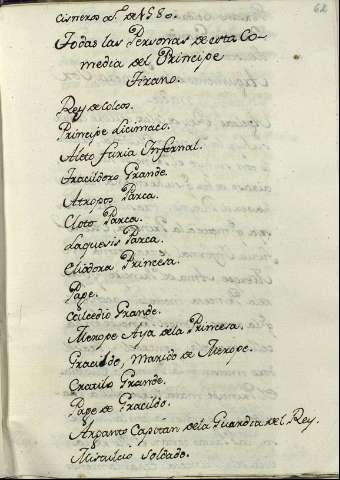 62
Cisneros aº. de 1580.
Todas las Personas de esta Co-
media del Principe
tirano.
Rey de Colcos.
Principe Licimaco.
Aleto furia Infernal.
Tracildoro Grande.
Atropos Parca.
Cloto Parca.
Laquesis Parca.
Eliodora Princesa.
Page.
Calcedio Grande.
Merope Aya dela Princesa.
Gracildo, Marido de Merope.
Cratilo Grande.
Page de Gracildo.
Arpanto Capitan dela Guardia del Rey.
Soldado.